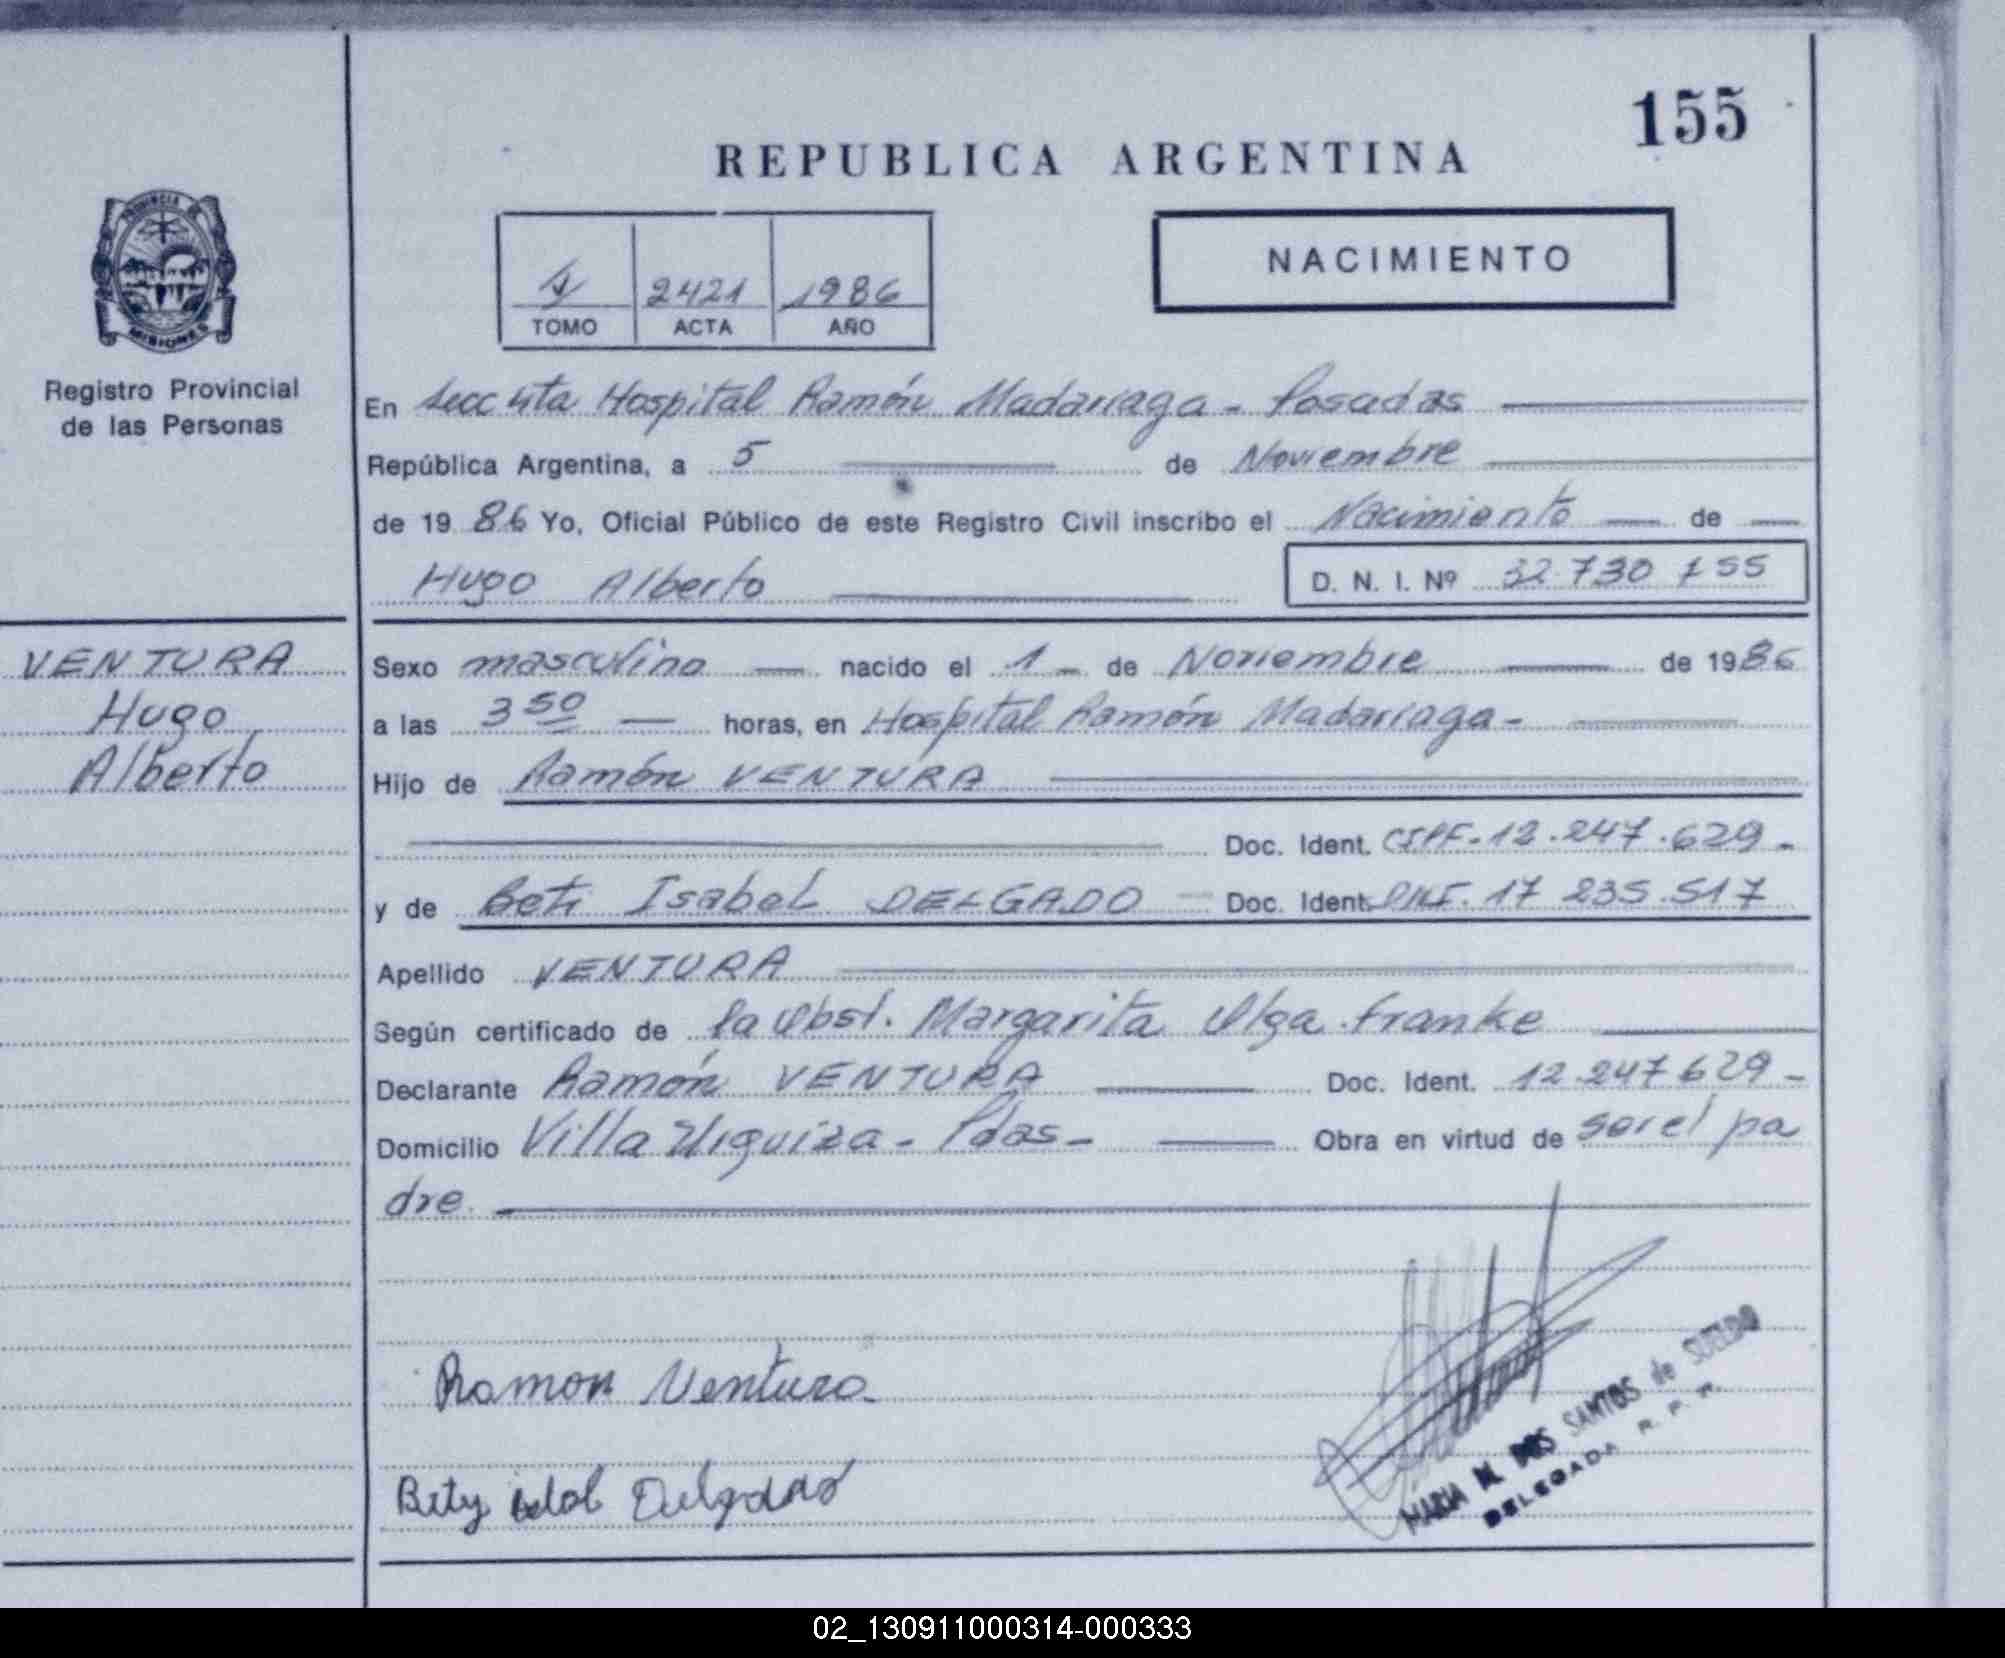 155
REPUBLICA ARGENTINA
NACIMIENTO
4 2421 1986
TOMO ACTA AÑO
PROVINCIA DE
MISIONES
Registro Provincial
de las Personas
En Secc 4ta Hospital Ramón Madariaga - Posadas
República Argentina, a 5 de Noviembre
de 19 86 Yo, Oficial Público de este Registro Civil inscribo el Nacimiento de
Hugo Alberto D. N. I. Nº 32 730 155
VENTURA
Hugo
Alberto
Sexo masculino nacido el 1 de Noviembre de 1986
a las 3 50 horas, en Hospital Ramón Madariaga -
Hijo de Ramón VENTURA
Doc. Ident. CIPF. 12.247.629 -
y de Beti Isabel DELGADO Doc. Ident. 17 235.517
Apellido VENTURA
Según certificado de la Obst. Margarita Olga Franke
Declarante Ramón VENTURA Doc. Ident. 12.247629 -
Domicilio Villa Urquiza - Pdas - Obra en virtud de ser el pa
dre.
Ramon Ventura
Bety Delgado
MARIA M. DOS SANTOS de SUELDO
DELEGADA R. P. P.
02_130911000314-000333